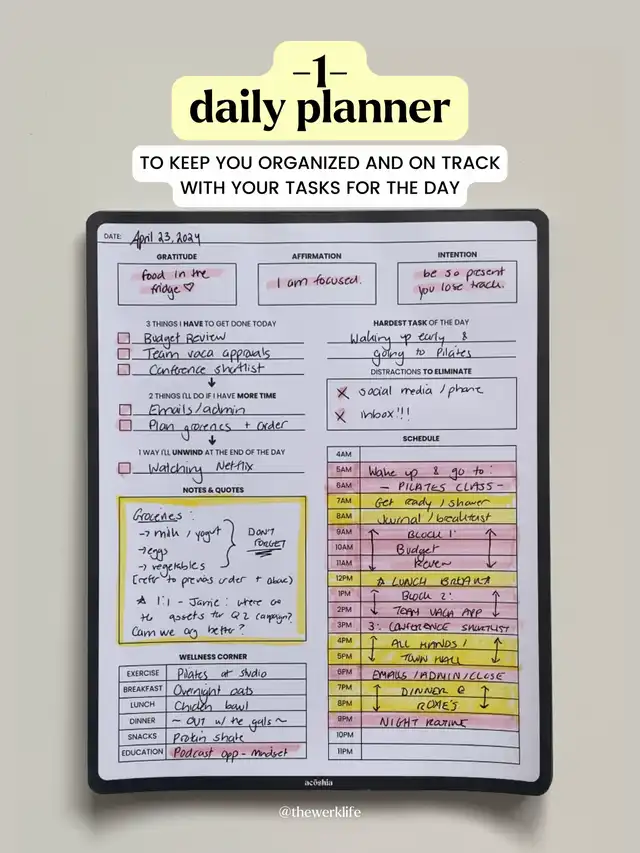 -1-
daily planner
TO KEEP YOU ORGANIZED AND ON TRACK
WITH YOUR TASKS FOR THE DAY
DATE: April 23, 2024
GRATITUDE
food in the
fridge ♡
AFFIRMATION
I am focused.
INTENTION
be so present
you lose track.
3 THINGS I HAVE TO GET DONE TODAY
Budget Review
Team vaca approvals
Conference shortlist
2 THINGS I'LL DO IF I HAVE MORE TIME
Emails/admin
Plan groceries + order
1 WAY I'LL UNWIND AT THE END OF THE DAY
Watching Netflix
NOTES & QUOTES
Groceries:
→ milk / yogurt
→ eggs
→ vegetables
DON'T
FORGET
(refer to previous order + above)
☆ 1:1 - Jamie: where are
the assets for Q2 campaign?
Can we org better?
WELLNESS CORNER
EXERCISE Pilates at studio
BREAKFAST Overnight oats
LUNCH Chicken bowl
DINNER ~ OUT w/ the gals ~
SNACKS Protein shake
EDUCATION Podcast app - mindset
HARDEST TASK OF THE DAY
Waking up early &
going to Pilates
DISTRACTIONS TO ELIMINATE
X social media / phone
X inbox!!!
SCHEDULE
4AM
5AM Wake up & go to:
6AM — PILATES CLASS —
7AM Get ready / shower
8AM Journal / breakfast
9AM BLOCK 1:
10AM Budget
11AM Review
12PM ☆ LUNCH BREAK ☆
1PM BLOCK 2:
2PM TEAM VACA APP
3PM 3: CONFERENCE SHORTLIST
4PM ALL HANDS /
5PM TOWN HALL
6PM EMAILS /ADMIN/CLOSE
7PM DINNER @
8PM
9PM NIGHT ROUTINE
10PM
11PM
acōshia
@thewerklife